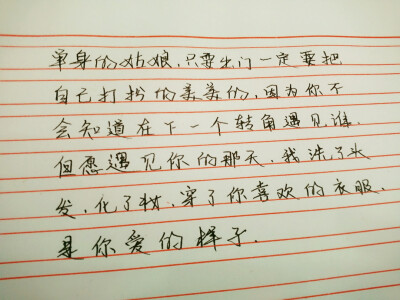 单身的姑娘，只要出门一定要把
自己打扮的美美的，因为你不
会知道在下一个转角遇见谁.
但愿遇见你的那天，我洗了头
发，化了妆，穿了你喜欢的衣服，
是你爱的样子.